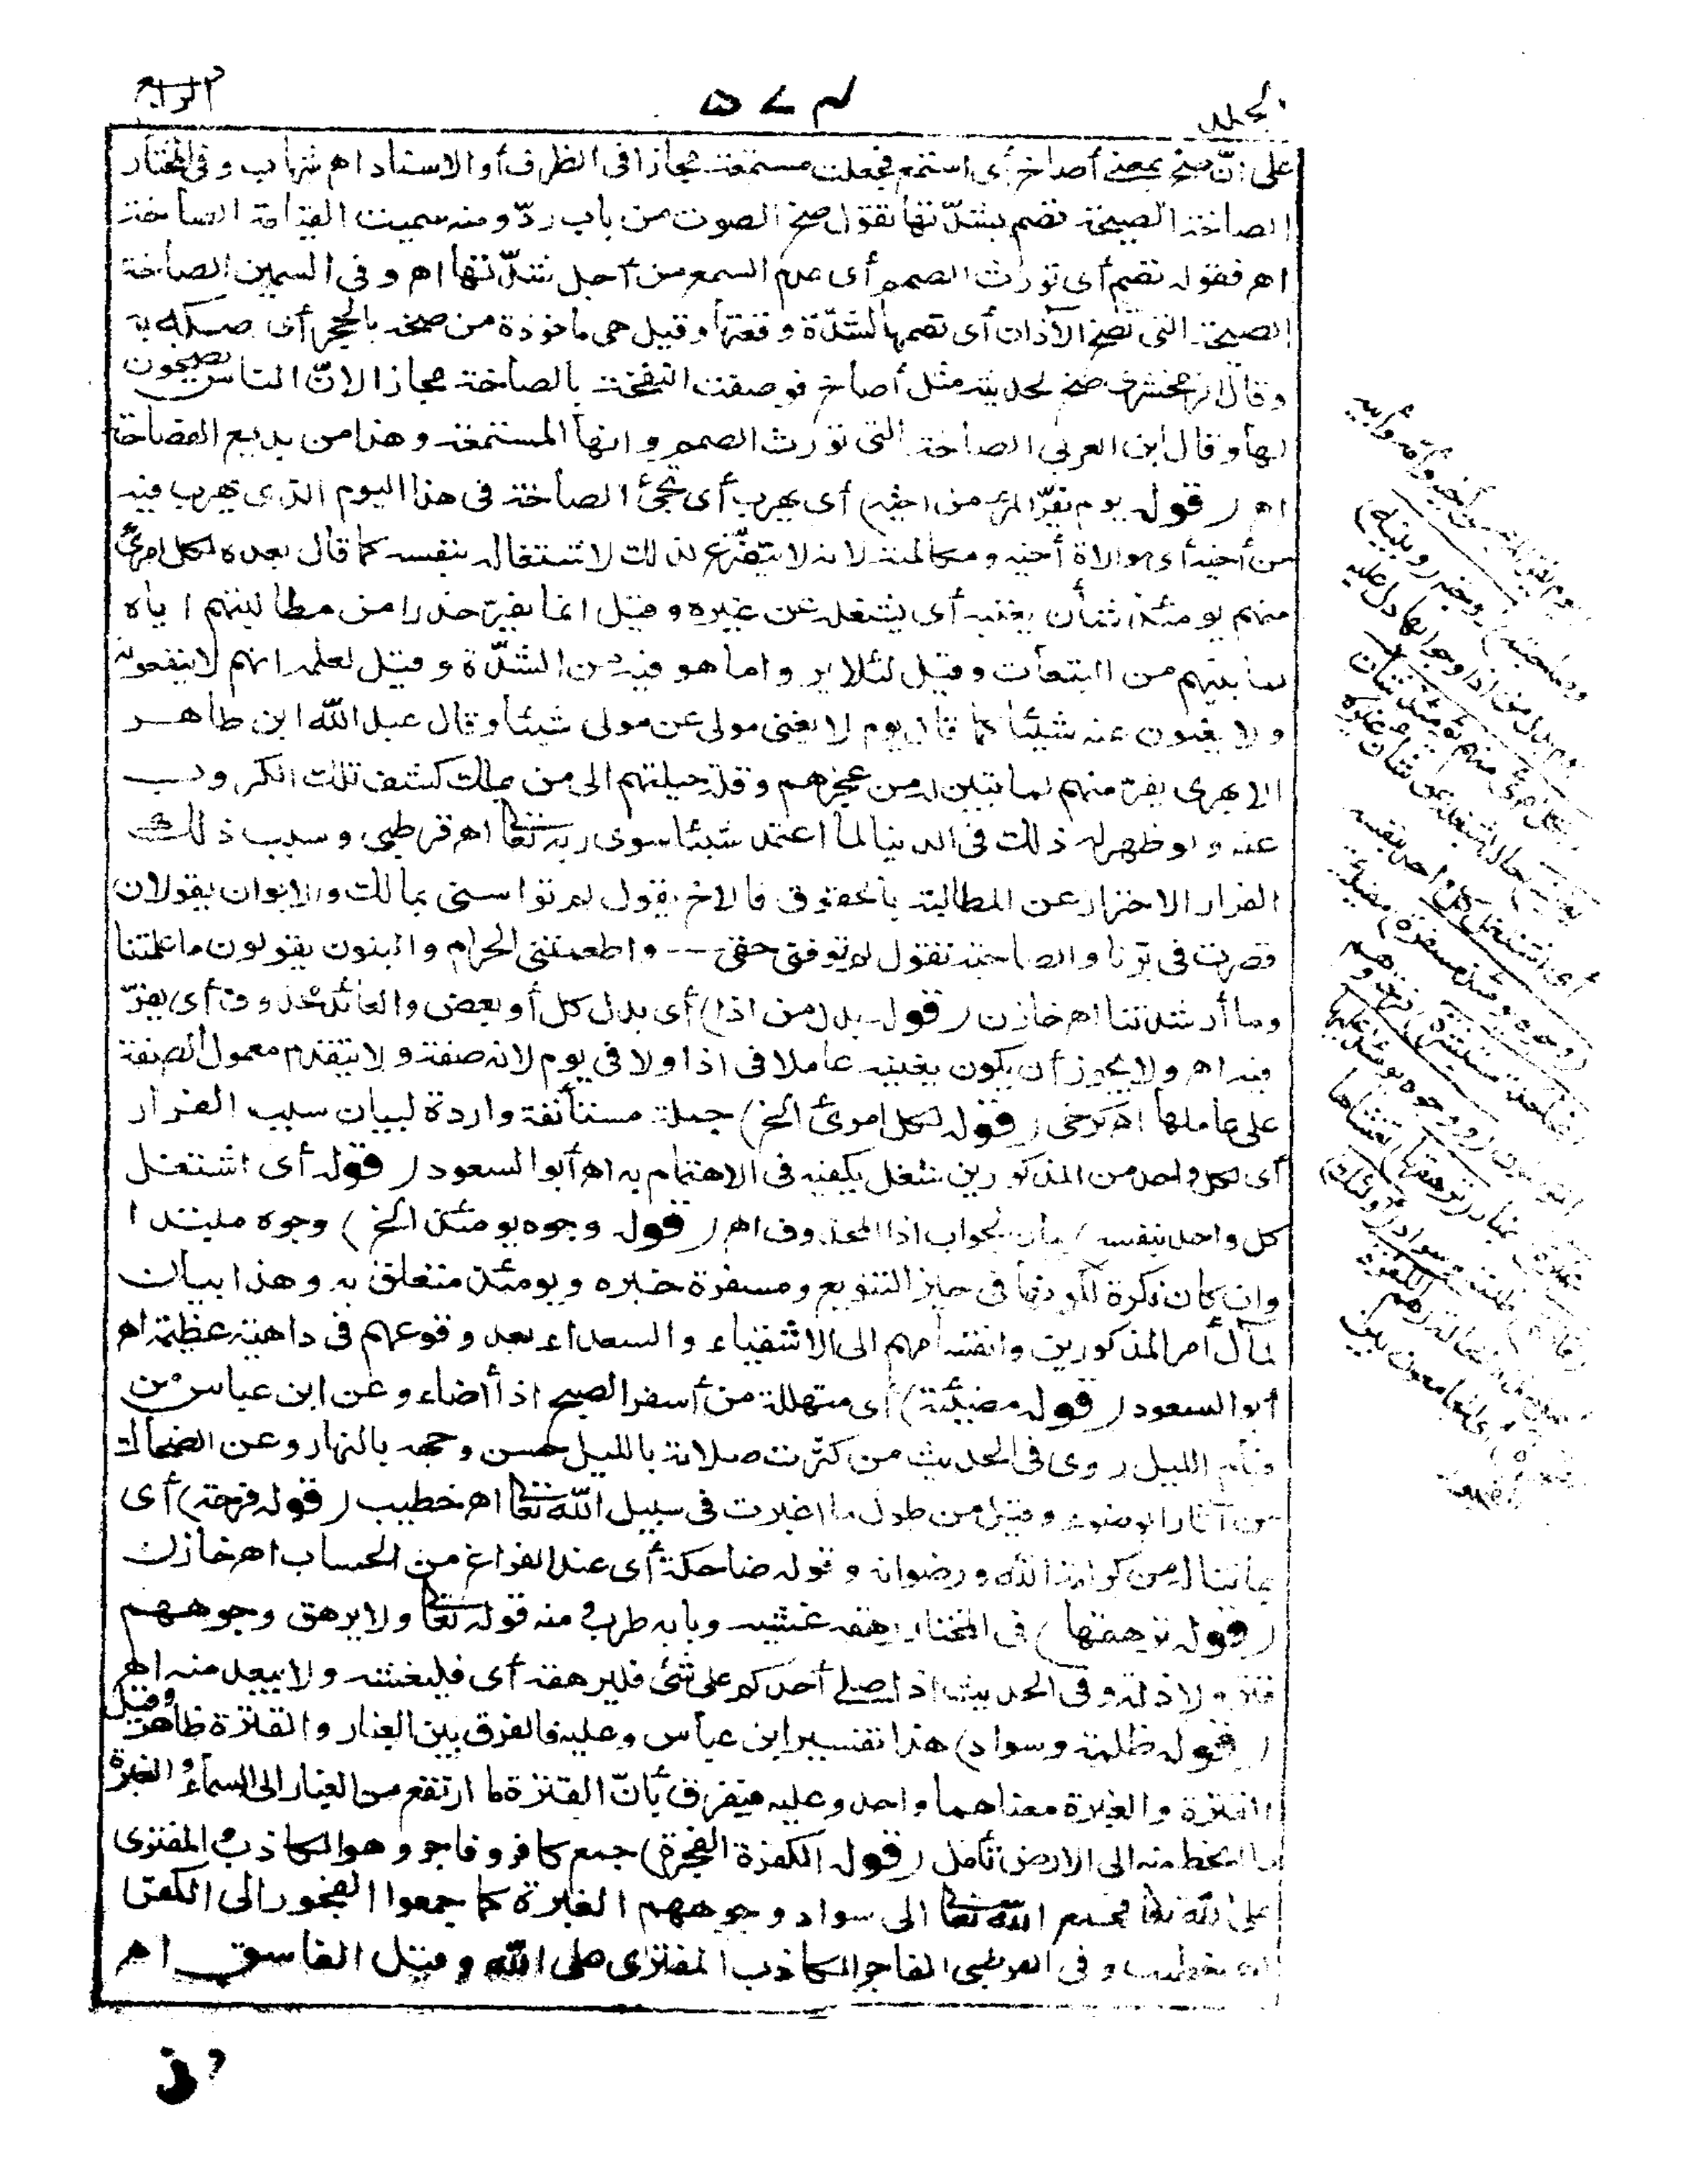 الجلد
٥٧٤
الرابع
على أنّ صخ بمعنى أصاخ أى استمع فجعلت مستمعة مجازا فى الظرف أو الاسناد اهـ شهاب وفى المختار
الصاخة الصيحة تصم بشدّتها تقول صخ الصوت من باب ردّ ومنه سميت القيامة الصاخة
اهـ فقوله تصم أى تورث الصمم أى عدم السمع من أجل شدّتها اهـ وفى السمين الصاخة
الصيحة التى تصخ الآذان أى تصمها لشدّة وقعتها وقيل هى ماخوذة من صخه بالحجر أى صكه به
وقال الزمخشرى صخ لحديثه مثل أصاخ فوصفت النفخة بالصاخة مجازا لانّ الناس يصيخون
لها وقال ابن العربى الصاخة التى تورث الصمم وانها المستمعة وهذا من بديع الفصاحة
اهـ (قوله يوم يفرّ المرء من اخيه) أى يهرب أى تجئ الصاخة فى هذا اليوم الذى يهرب فيه
من أخيه أى موالاة أخيه ومكالمته لانه لا يتفرّغ لذلك لاشتغاله بنفسه كما قال بعده لكل امرئ
منهم يومئذ شأن يغنيه أى يشغله عن غيره وقيل انما يفرّ حذرا من مطالبتهم اياه
لما بينهم من التبعات وقيل لئلا يروا ما هو فيه من الشدّة وقيل لعلمه انهم لا ينفعونه
ولا يغنون عنه شيئا كما قال يوم لا يغنى مولى عن مولى شيئا وقال عبد الله ابن طاهر
الابهرى يفرّ منهم لما تبين له من عجزهم وقلة حيلتهم الى من يملك كشف تلك الكروب
عنه ولو ظهر له ذلك فى الدنيا لما اعتمد شيئا سوى ربه تعالى اهـ قرطبى وسبب ذلك
الفرار الاحتراز عن المطالبة بالحقوق فالاخ يقول لم تواسنى بمالك والابوان يقولان
قصرت فى برّنا والصاحبة تقول لم توفنى حقى -- واطعمتنى الحرام والبنون يقولون ما علمتنا
وما أرشدتنا اهـ خازن (قوله بدل من اذا) أى بدل كل أو بعض والعائد محذوف أى يفرّ
فيه اهـ ولا يجوز أن يكون يغنيه عاملا فى اذا ولا فى يوم لانه صفة ولا يتقدم معمول الصفة
على عاملها اهـ كرخى (قوله لكل امرئ الخ) جملة مستأنفة واردة لبيان سبب الفرار
أى لكل واحد من المذكورين شغل يكفيه فى الاهتمام به اهـ أبو السعود (قوله أى اشتغل
كل واحد بنفسه) بيان لجواب اذا المحذوف اهـ (قوله وجوه يومئذ الخ) وجوه مبتدا
وان كان نكرة لكونها فى حيز التنويع ومسفرة خبره ويومئذ متعلق به وهذا بيان
لمآل أمر المذكورين وانقسامهم الى الاشقياء والسعداء بعد وقوعهم فى داهية عظيمة اهـ
أبو السعود (قوله مضيئة) أى متهللة من أسفر الصبح اذا أضاء وعن ابن عباس من
قيام الليل روى فى الحديث من كثرت صلاته بالليل حسن وجهه بالنهار وعن الضحاك
من آثار الوضوء وقيل من طول ما اغبرت فى سبيل الله تعالى اهـ خطيب (قوله فرحة) أى
بما تنال من كرامة الله ورضوانه وقوله ضاحكة أى عند الفراغ من الحساب اهـ خازن
(قوله ترهقها) فى المختار رهقه غشيه وبابه طرب ومنه قوله تعالى ولا يرهق وجوههم
قتر ولا ذلة وفى الحديث اذا صلى أحدكم على شئ فليرهقه أى فليغشه ولا يبعد منه اهـ
(قوله ظلمة وسواد) هذا تفسير ابن عباس وعليه فالفرق بين الغبار والقترة ظاهر وقيل
القترة والغبرة معناهما واحد وعليه فيفرق بأنّ القترة ما ارتفع من الغبار الى السماء والغبرة
ما انحط منه الى الارض تأمل (قوله الكفرة الفجرة) جمع كافر وفاجر وهو الكاذب المفترى
على الله تعالى فجمع الله تعالى الى سواد وجوههم الغبرة كما جمعوا الفجور الى الكفر
اهـ خطيب وفى القرطبى الفاجر الكاذب المفترى على الله وقيل الفاسق اهـ
يوم يفر المرء من أخيه وأمه وأبيه
وصاحبته) زوجته (وبنيه)
يوم بدل من اذا وجوابها دل عليه
(لكل امرئ منهم يومئذ شأن
يغنيه) حال يشغله عن شأن غيره
أى اشتغل كل واحد بنفسه
(وجوه يومئذ مسفرة) مضيئة
(ضاحكة مستبشرة) فرحة وهم
المؤمنون (ووجوه يومئذ عليها
غبرة) غبار (ترهقها) تغشاها
(قترة) ظلمة وسواد (أولئك)